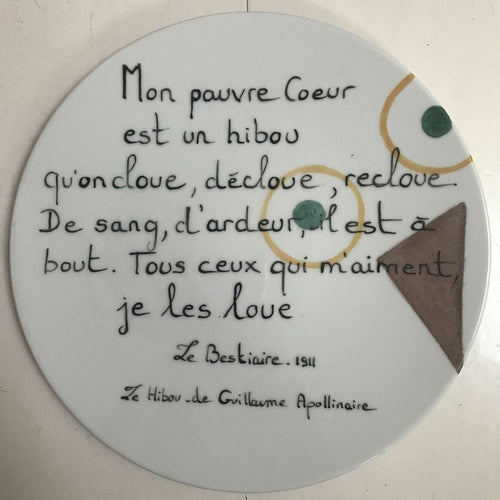 Mon pauvre Coeur
est un hibou
qu'on cloue, décloue, recloue.
De sang, d'ardeur, il est à
bout. Tous ceux qui m'aiment,
je les loue
Le Bestiaire. 1911
Le Hibou de Guillaume Apollinaire